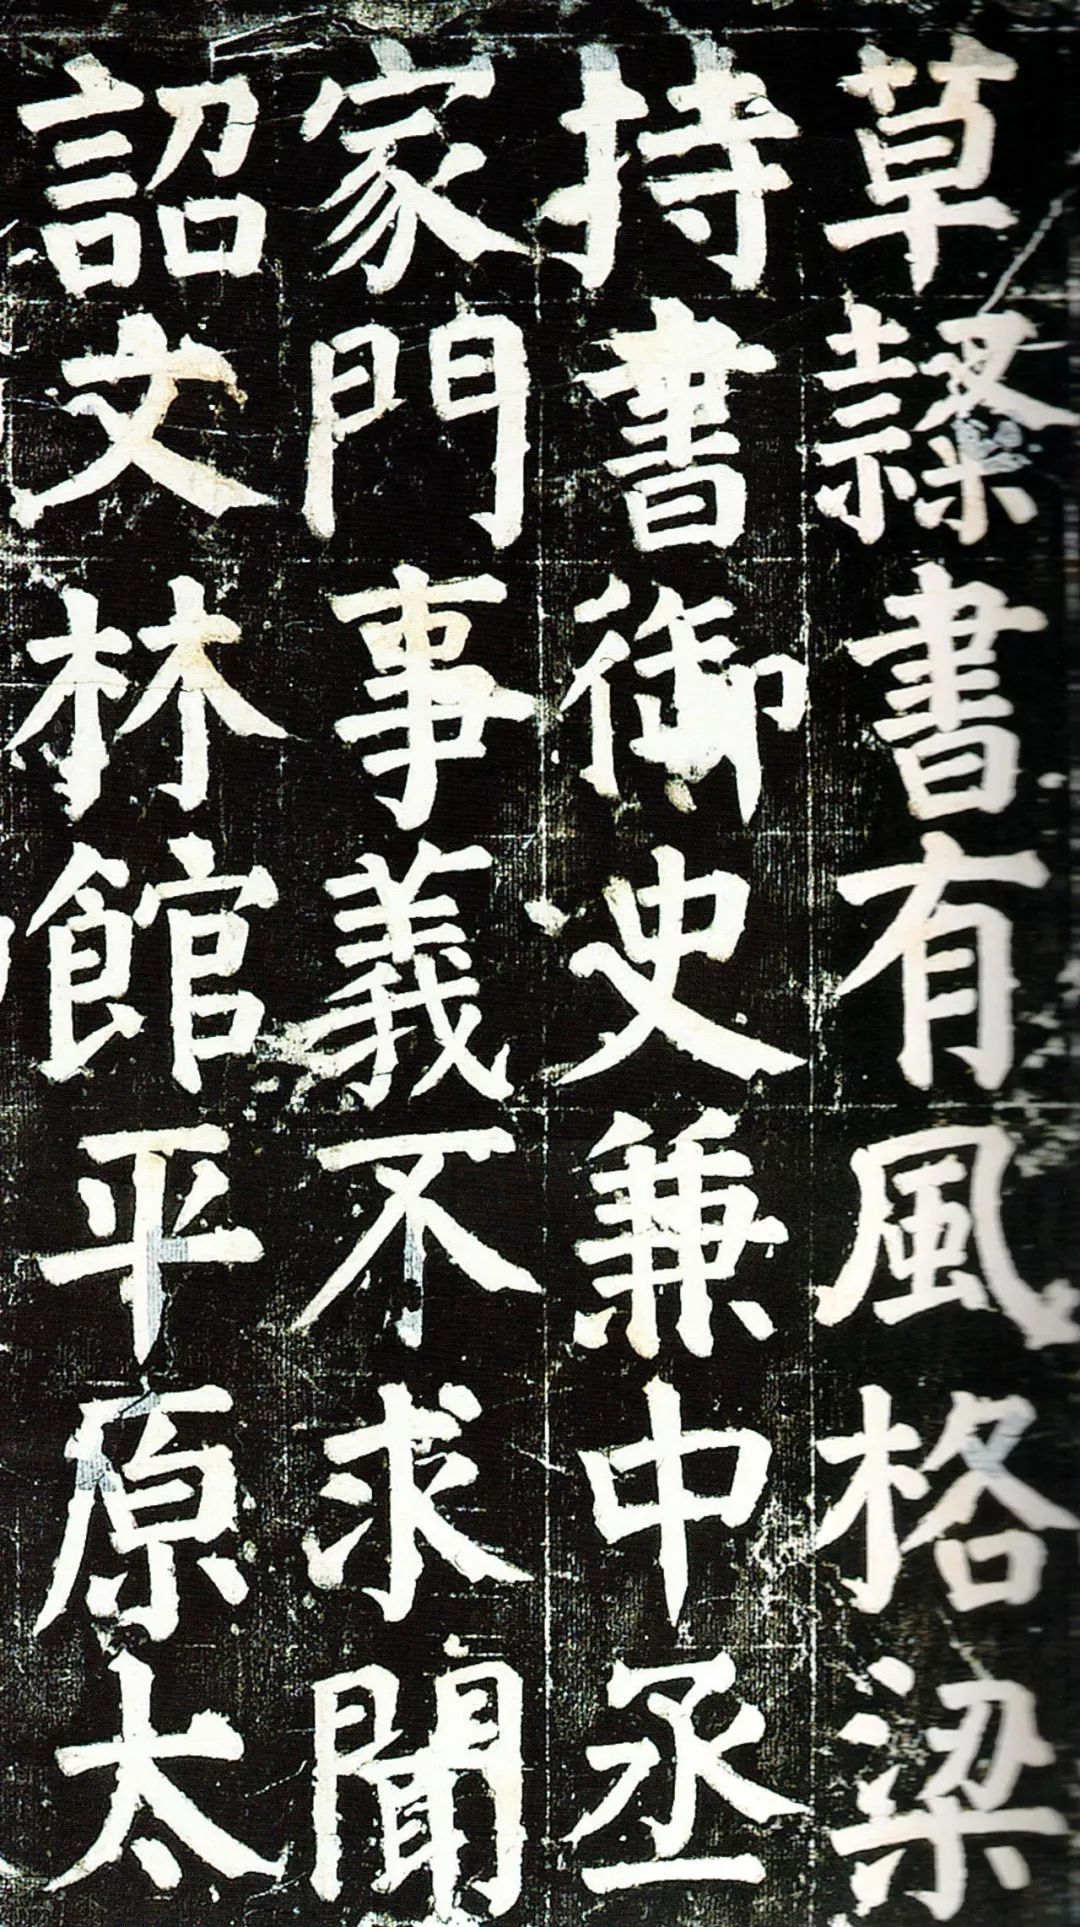 草隸書有風格梁
持書御史兼中丞
家門事義不求聞
詔文林館平原太